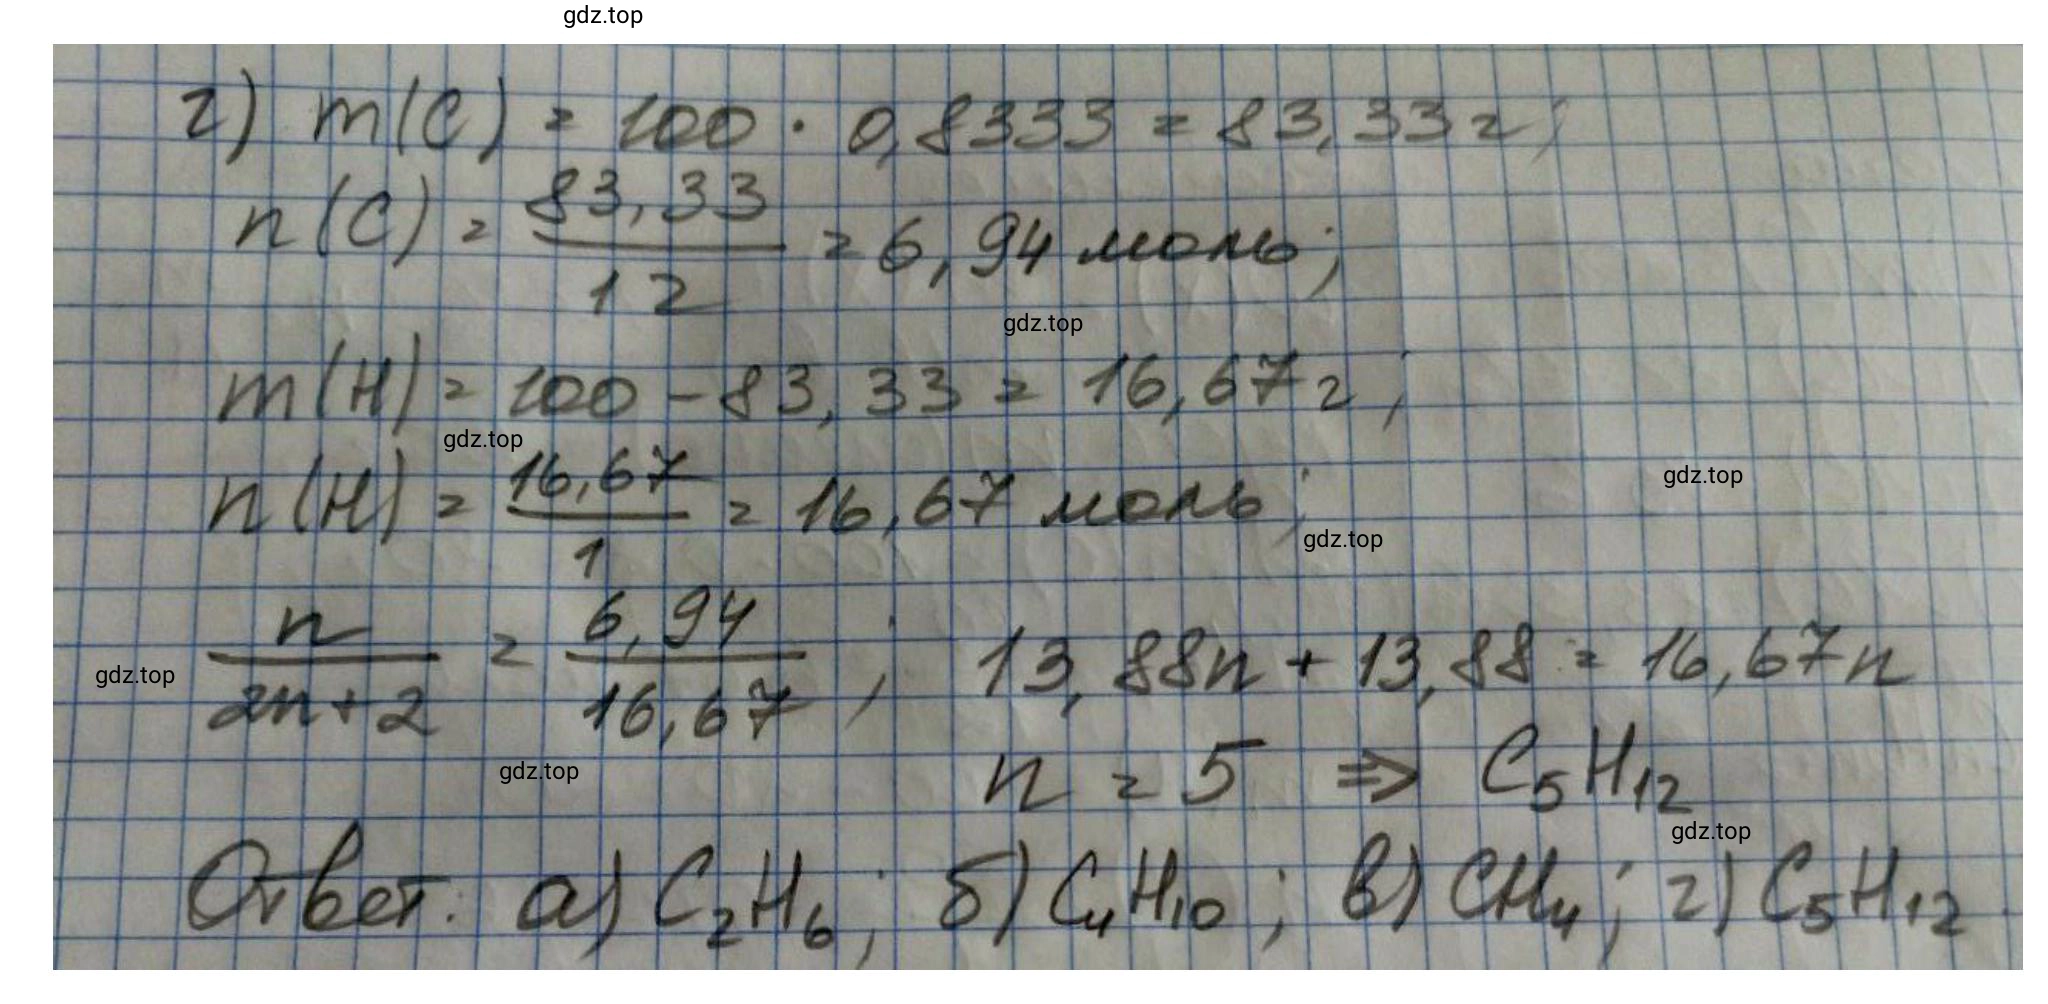 gdz.top
г) m(C) = 100 · 0,8333 = 83,33 г;
n(C) = 83,33 / 12 = 6,94 моль;
gdz.top
m(H) = 100 - 83,33 = 16,67 г;
gdz.top
n(H) = 16,67 / 1 = 16,67 моль;
gdz.top
gdz.top
n / 2n+2 = 6,94 / 16,67 ; 13,88n + 13,88 = 16,67n
gdz.top
n = 5 ⇒ C₅H₁₂
gdz.top
gdz.top
Ответ: а) C₂H₆; б) C₄H₁₀; в) CH₄; г) C₅H₁₂.